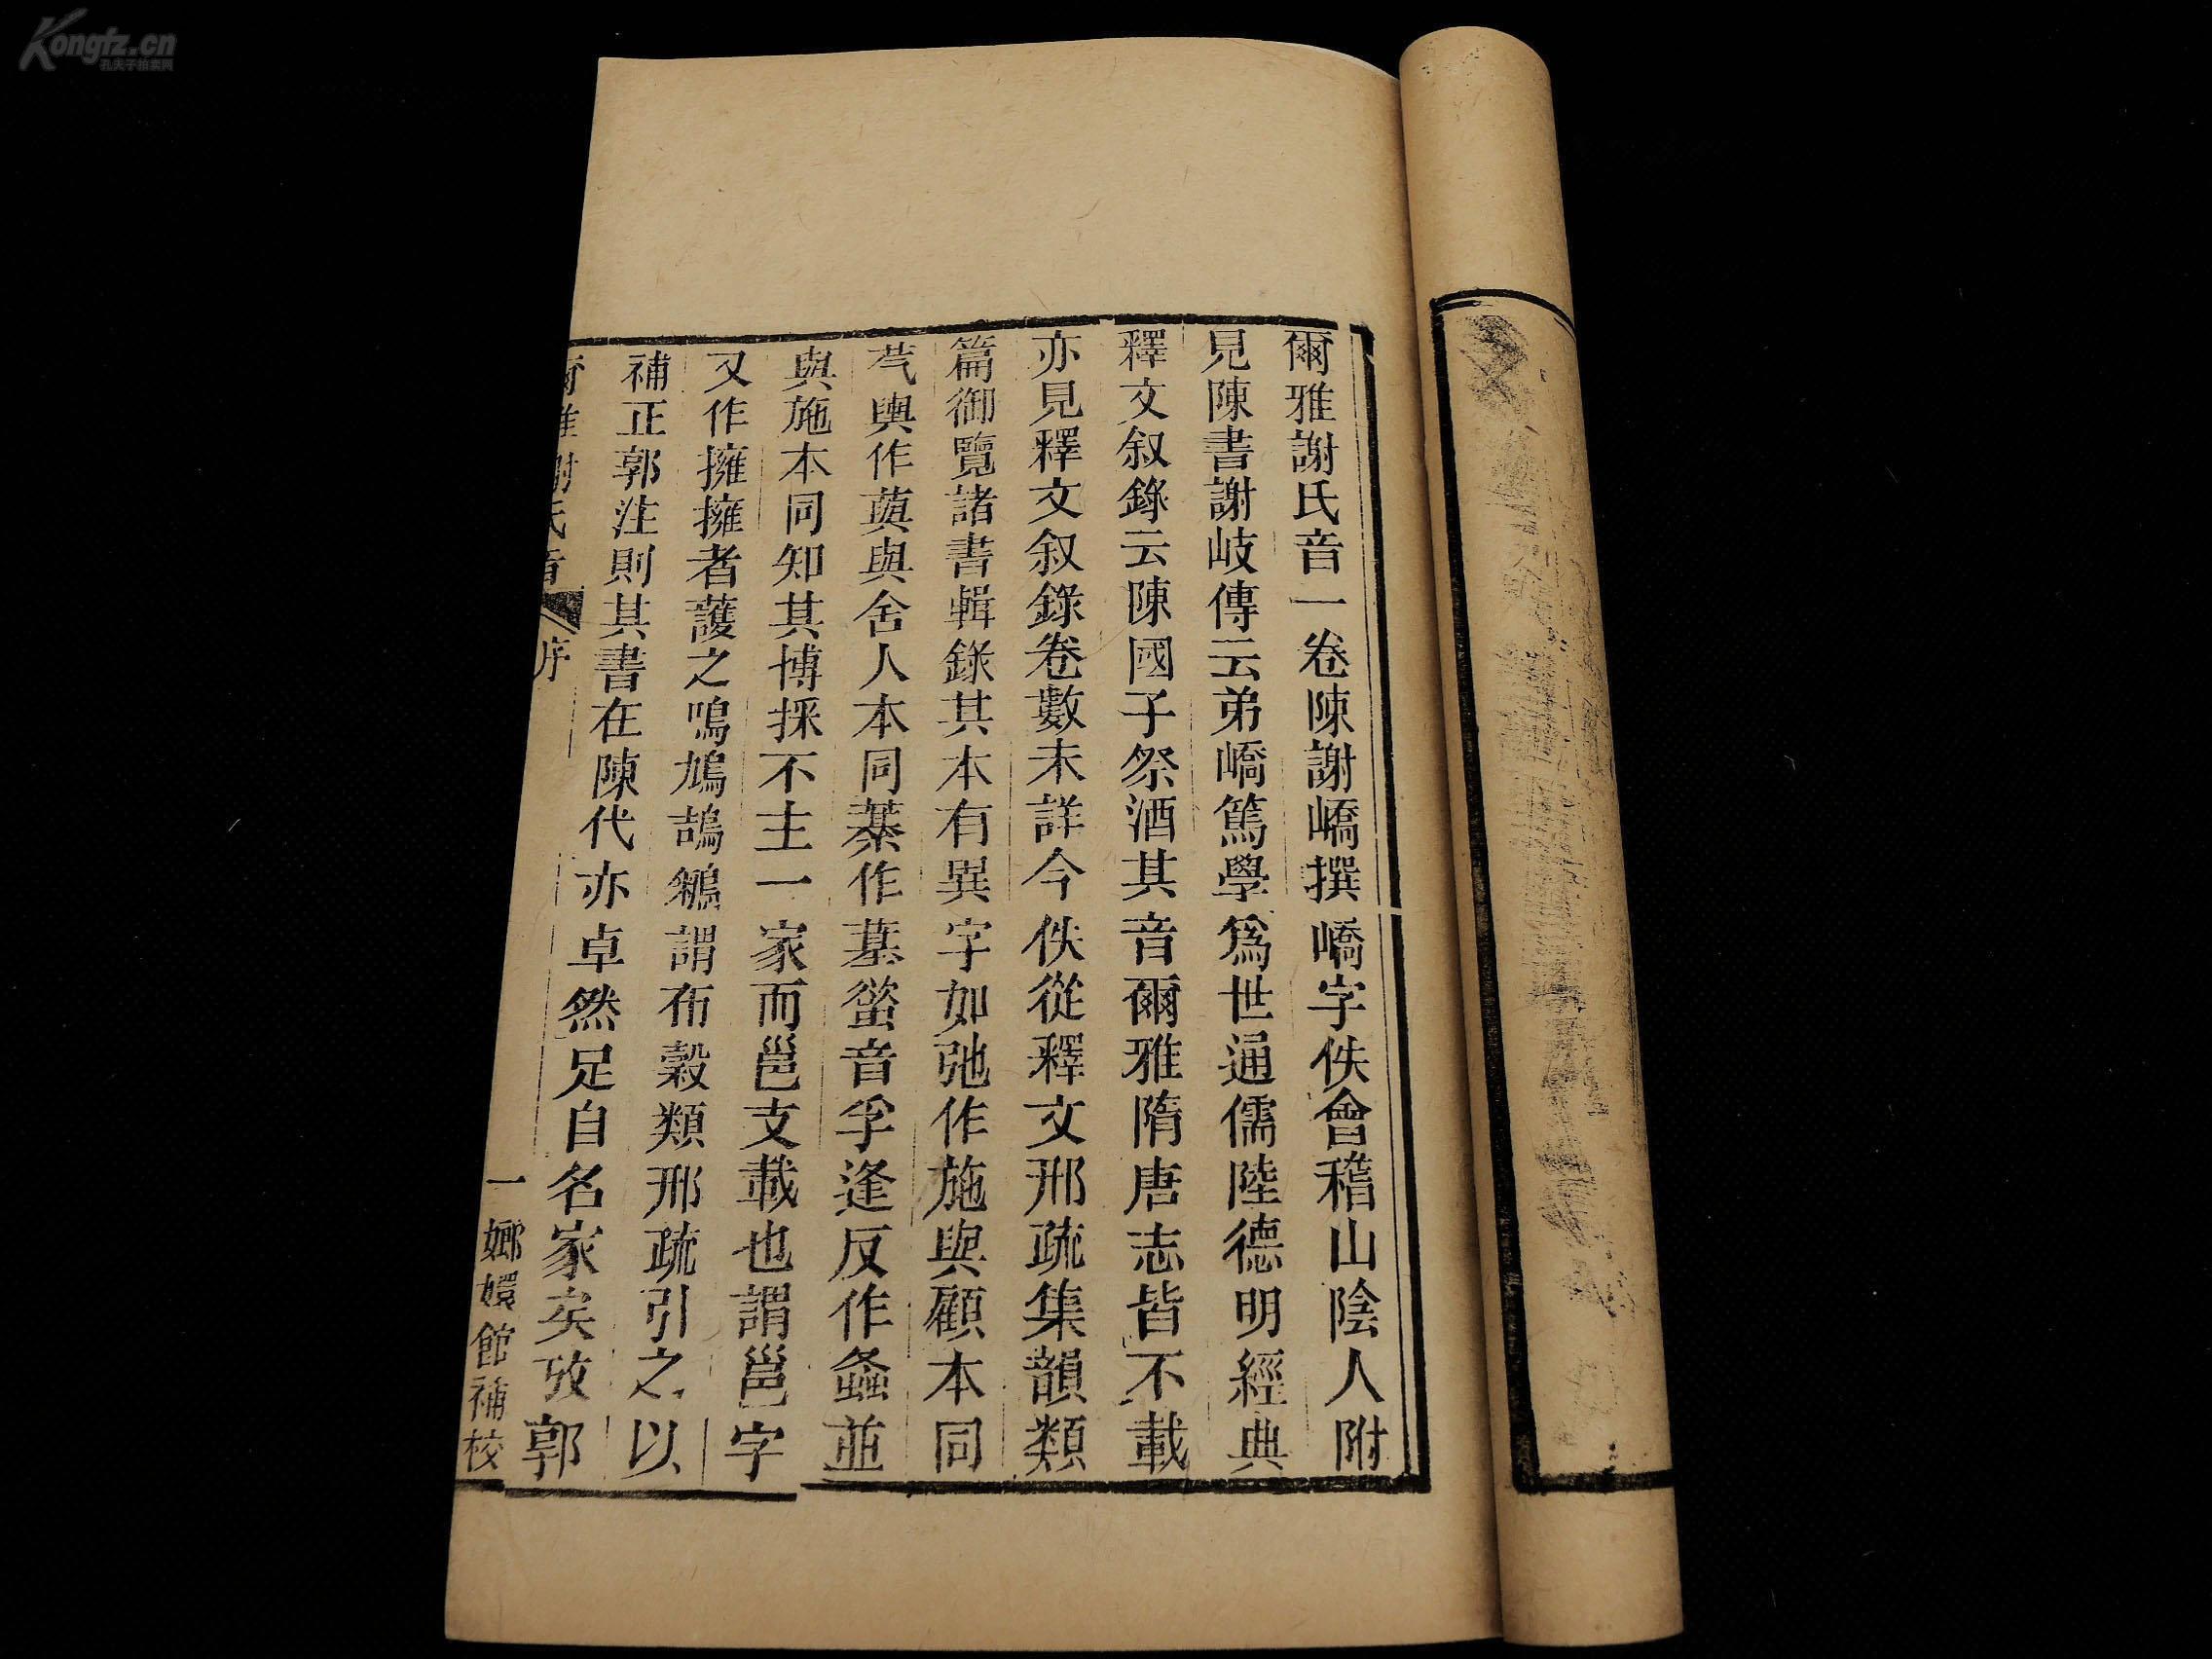 爾雅謝氏音一卷陳謝嶠撰嶠字佚會稽山陰人附
見陳書謝岐傳云弟嶠篤學爲世通儒陸德明經典
釋文叙錄云陳國子祭酒其音爾雅隋唐志皆不載
亦見釋文叙錄卷數未詳今佚從釋文邢疏集韻類
篇御覽諸書輯錄其本有異字如弛作施與顧本同
芞輿作藇與舍人本同綦作蓋音孚逢反作螽並
與施本同知其博採不主一家而邕支載也謂邕字
又作擁擁者護之鳴鳩鵠鵴謂布穀類邢疏引之以
補正郭注則其書在陳代亦卓然足自名家矣攷郭
爾雅謝氏音 序 一 嫏嬛館補校
Kongfz.cn
孔夫子拍卖网